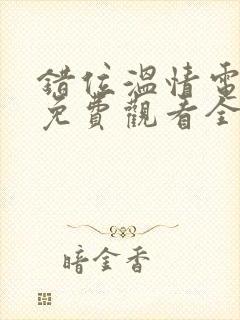 錯位溫情電
免費觀看全
暗金香